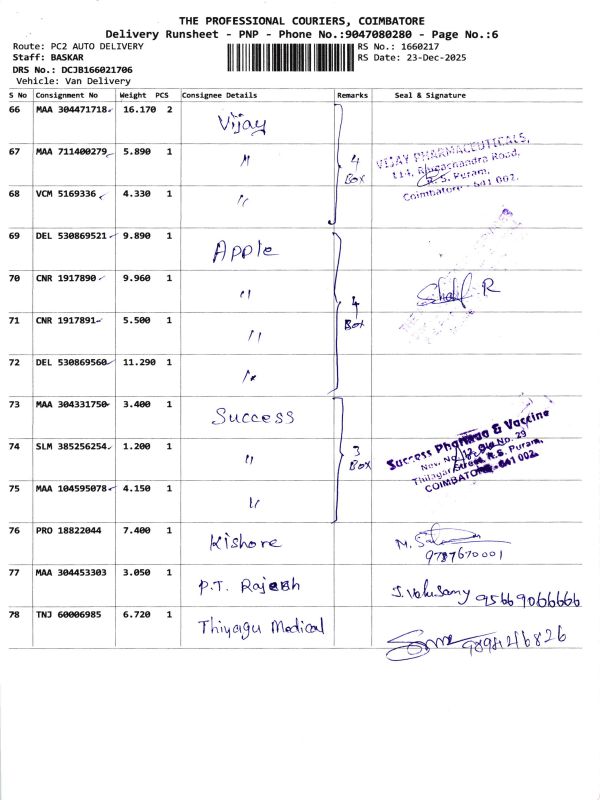 THE PROFESSIONAL COURIERS, COIMBATORE
Delivery Runsheet - PNP - Phone No.:9047080280 - Page No.:6
Route: PC2 AUTO DELIVERY
Staff: BASKAR
DRS No.: DCJB166021706
Vehicle: Van Delivery
RS No.: 1660217
RS Date: 23-Dec-2025
S No Consignment No Weight PCS Consignee Details Remarks Seal & Signature
66 MAA 304471718 16.170 2 Vijay
67 MAA 711400279 5.890 1 "
68 VCM 5169336 4.330 1 "
4
Box
VIJAY PHARMACEUTICALS,
114, Ramachandra Road,
R. S. Puram,
Coimbatore - 641 002.
69 DEL 530869521 9.890 1 Apple
70 CNR 1917890 9.960 1 "
71 CNR 1917891 5.500 1 "
72 DEL 530869560 11.290 1 "
4
Box
R
73 MAA 304331750 3.400 1 Success
74 SLM 385256254 1.200 1 "
75 MAA 104595078 4.150 1 "
3
Box
Success Pharmaa & Vaccine
New No. 12, Old No. 29
Thilagar Street, R.S. Puram,
COIMBATORE - 641 002.
76 PRO 18822044 7.400 1 Kishore
9787670001
77 MAA 304453303 3.050 1 P.T. Rajesh
95669066666
78 TNJ 60006985 6.720 1 Thiyagu Medical